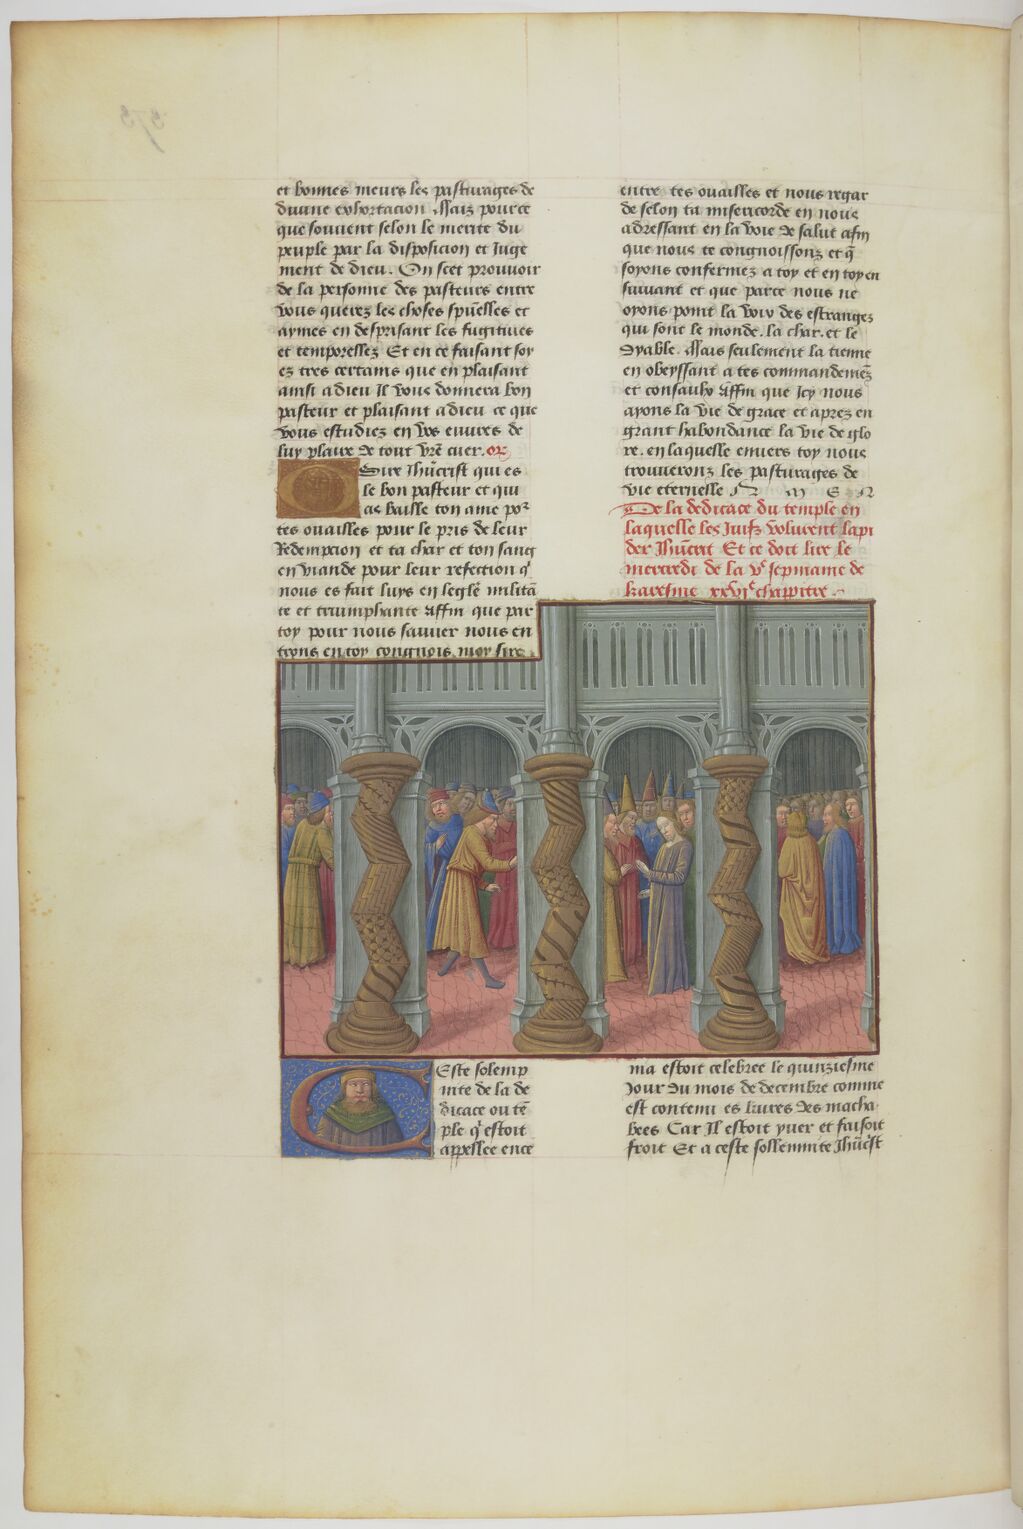 et bonnes meurs les pasturages de
divine exhortacion Mais pource
que souvent selon le merite du
peuple par la disposicion et Juge
ment de dieu. On scet prouvoir
de la personne des pasteurs entre
vous querez les choses spũelles et
aymes en desprisant les fugitives
et temporelles Et en ce faisant soy
ez tres certains que en plaisant
ainsi a dieu Il vous donnera bon
pasteur et plaisant a dieu ce que
vous estudiez en vos euures de
luy plaire de tout vr̃e cuer. or
Sire Ihũcrist qui es
le bon pasteur et qui
as baille ton ame poʳ
tes ouailles pour le pris de leur
Redempcion et ta char et ton sang
en viande pour leur refection qͥ
nous es fait luys en leglẽ militã
te et triumphante Affin que par
toy pour nous sauver nous en
trons en toy congnois moy sire
entre tes ouailles et nous regar
de selon ta misericorde en nous
adressant en la voie de salut afin
que nous te congnoissons et q̃
soyons confermez a toy et en toy en
suivant et que parce nous ne
oyons point la voix des estranges
qui sont le monde. la char. et le
dyable. Mais seulement la tienne
en obeyssant a tes commandemẽs
et consaulx Affin que Icy nous
ayons la vie de grace et aprez en
grant habondance la vie de glo
re. en laquelle envers toy nous
trouverons les pasturages de
vie eternelle A M E N
De la dedicace du temple en
laquelle les Juifz volurent lapi
der Ihũcrit Et ce doit lire le
mercredi de la vᵉ sepmaine de
karesme xxviᵉ chappitre
Ceste solemp
nite de la de
dicace ou tẽ
ple qͥ estoit
appellee ence
nia estoit celebree le quinziesme
Jour du mois de decembre comme
est contenu es livres des macha
bees Car Il estoit yver et faisoit
froit Et a ceste sollennite Ihũcst